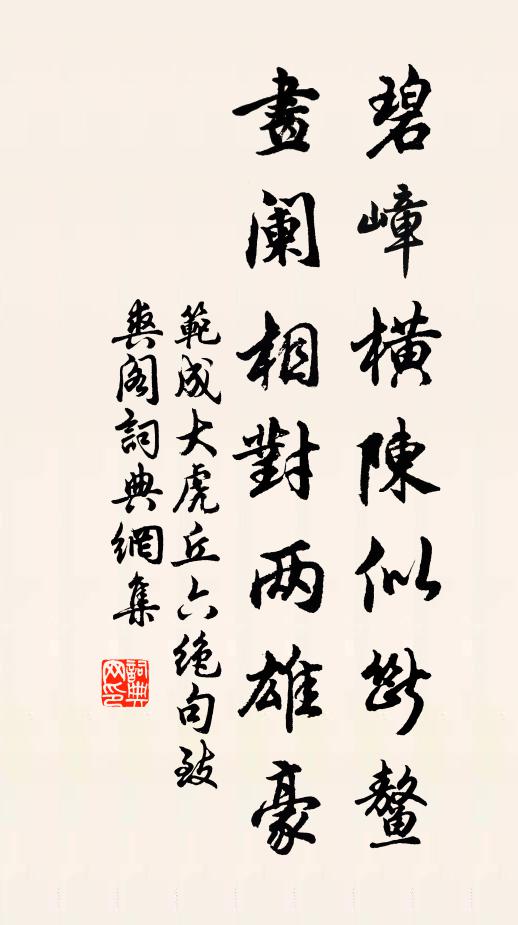 碧嶂橫陳似斷鳌
畫阑相對两雄豪
範成大虎丘六绝句致
爽阁詞典網集
詞典网印